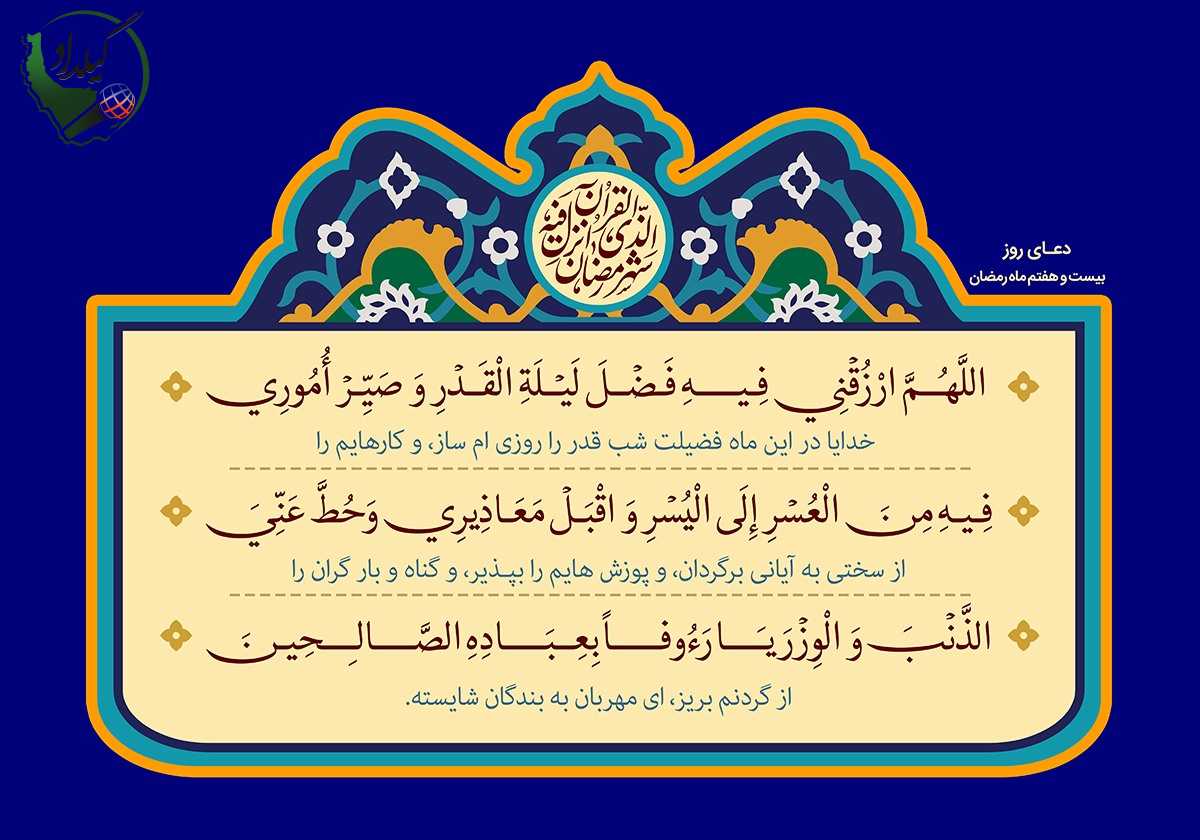 گیلداد
شهر رمضان
الذی انزل فیه
القرآن
دعـای روز
بیست و هفتم ماه رمضان
اللَّهُمَّ ارْزُقْنِي فِيهِ فَضْلَ لَيْلَةِ الْقَدْرِ وَ صَيِّرْ أُمُورِي
خدایا در این ماه فضیلت شب قدر را روزی ام ساز، و کارهایم را
فِيهِ مِنَ الْعُسْرِ إِلَى الْيُسْرِ وَ اقْبَلْ مَعَاذِيرِي وَحُطَّ عَنِّيَ
از سختی به آیانی برگردان، و پوزش هایم را بپذیر، و گناه و بار گران را
الذَّنْبَ وَ الْوِزْرَ يَا رَءُوفاً بِعِبَادِهِ الصَّالِحِينَ
از گردنم بریز، ای مهربان به بندگان شایسته.